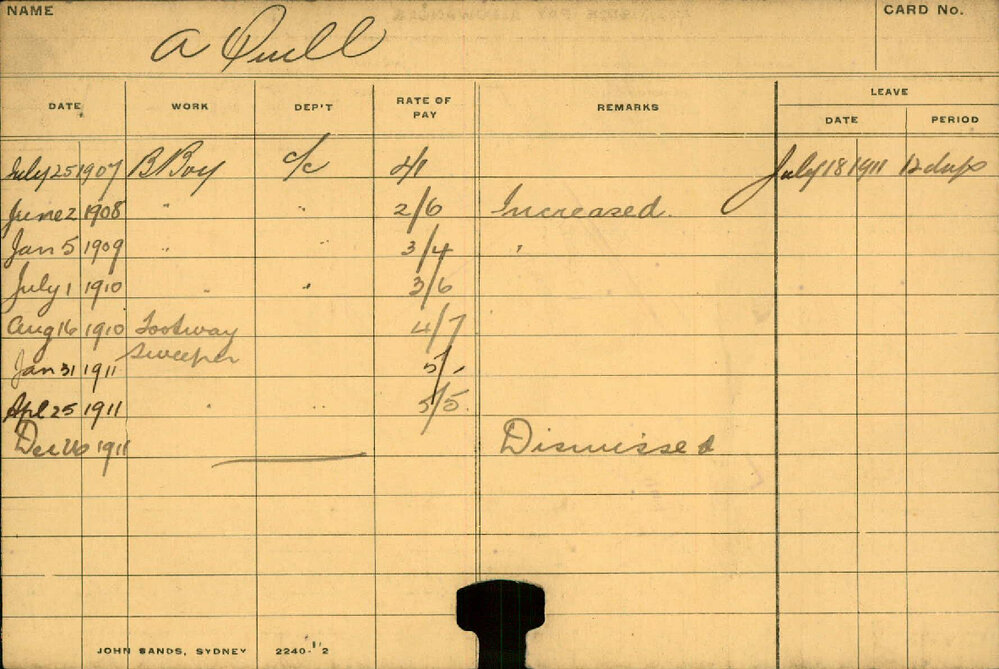 NAME A Quell CARD No.
DATE WORK DEP'T RATE OF PAY REMARKS LEAVE
DATE PERIOD
July 25 1907 B Boy C/C July 18 1911 12 days
June 2 1908 " " 2/6 Increased.
Jan 5 1909 " " 3/4 "
July 1 1910 " " 3/6
Aug 16 1910 Footway 4/7
sweeper
Jan 31 1911 5/-
Apl 25 1911 " " 5/5.
Dec 1911 Dismissed
JOHN SANDS, SYDNEY 2240-